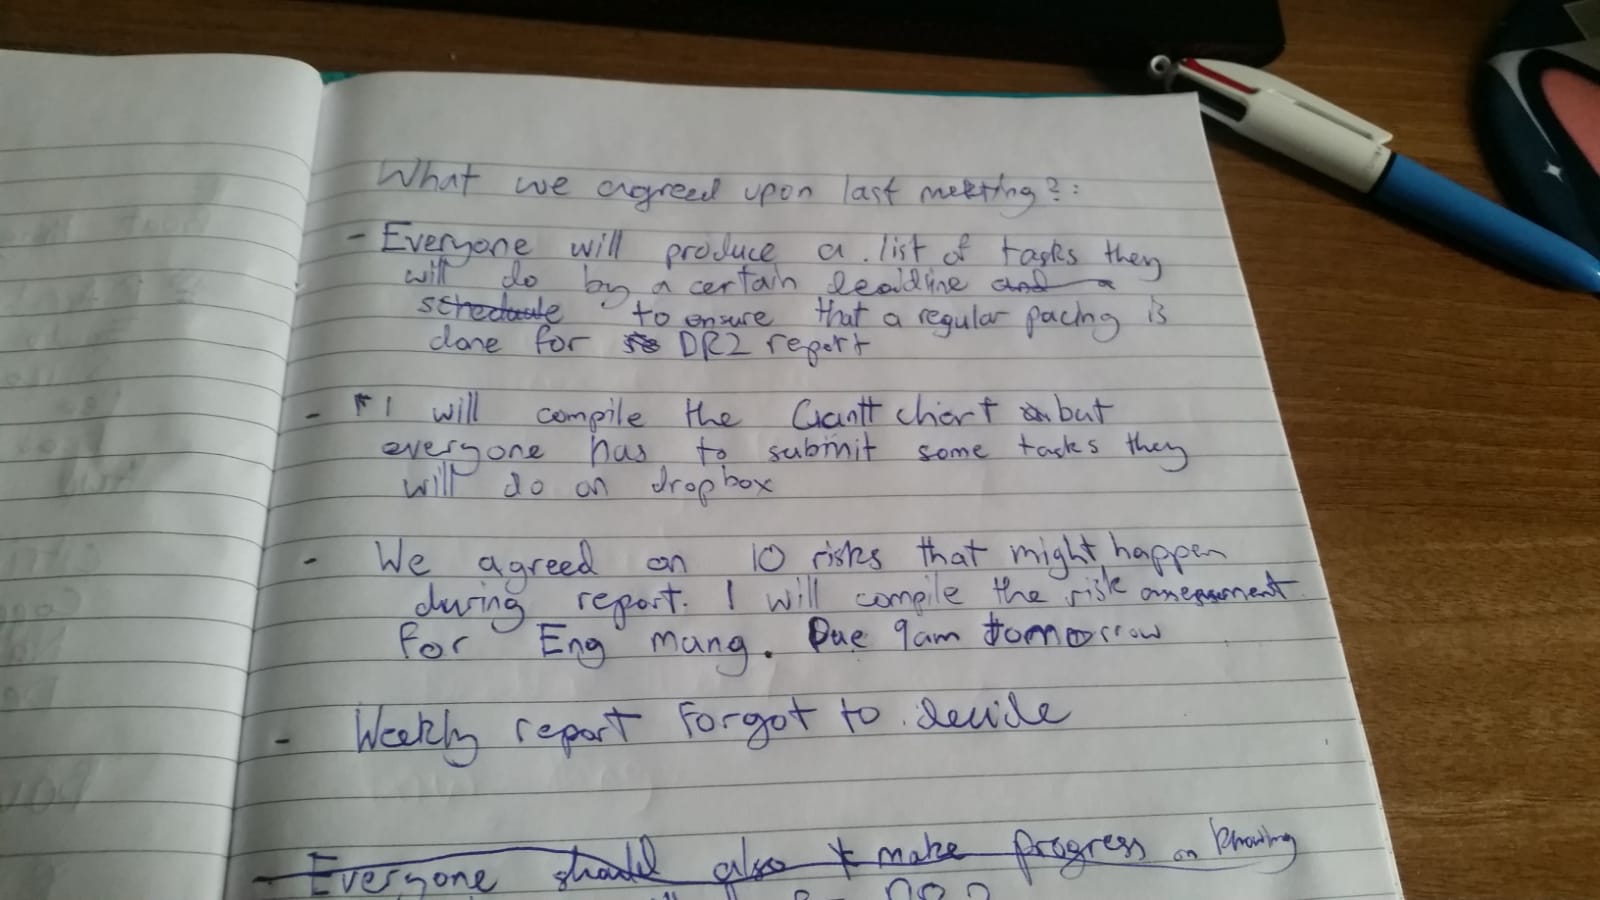 What we agreed upon last meeting?:
- Everyone will produce a list of tasks they
will do by a certain deadline and a
schedule to ensure that a regular pacing is
done for DR2 report
- I will compile the Gantt chart but
everyone has to submit some tasks they
will do on dropbox
- We agreed on 10 risks that might happen
during report. I will compile the risk assessment
for Eng mang. Due 9am tomorrow
- Weekly report forgot to decide
- Everyone should also make progress on knowing